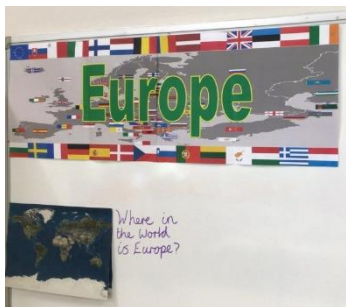 Europe
Where in
the World
is Europe?